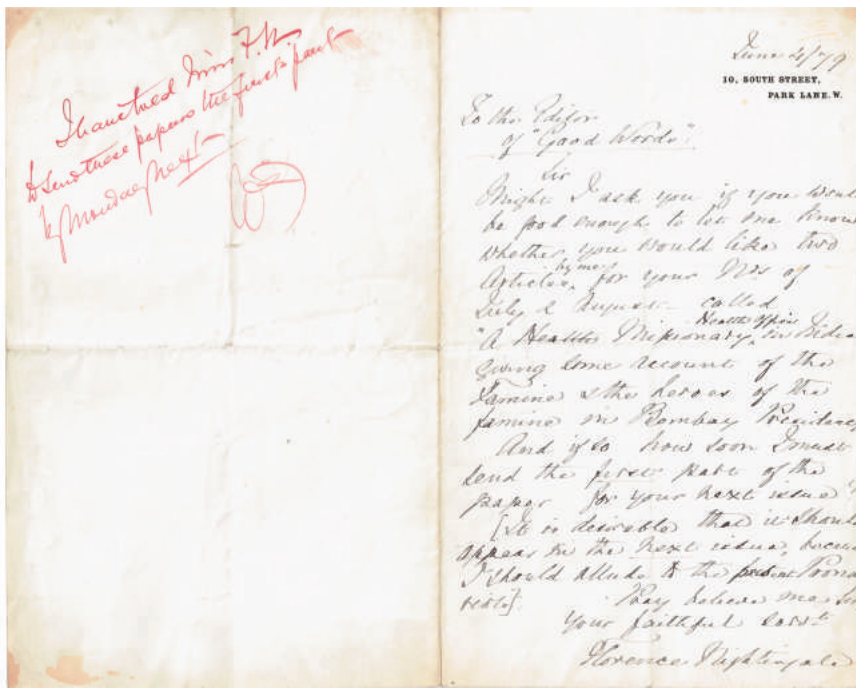 I have asked Miss F. N
to send these papers the first part
by Monday next
June 4/79
10, SOUTH STREET,
PARK LANE. W.
To the Editor
of "Good Words":
Sir
Might I ask you if you would
be good enough to let me know
whether you would like two
Articles, by me, for your Nos of
July & August called
"A Health Missionary, Health Officer in India
giving some account of the
famine & the heroes of the
famine in Bombay Presidency
And if so how soon I must
send the first part of the
paper for your next issue?
[It is desirable that it should
appear in the next issue, because
I should allude to the present Poona
riots].
Pray believe me Sir
your faithful servt
Florence Nightingale